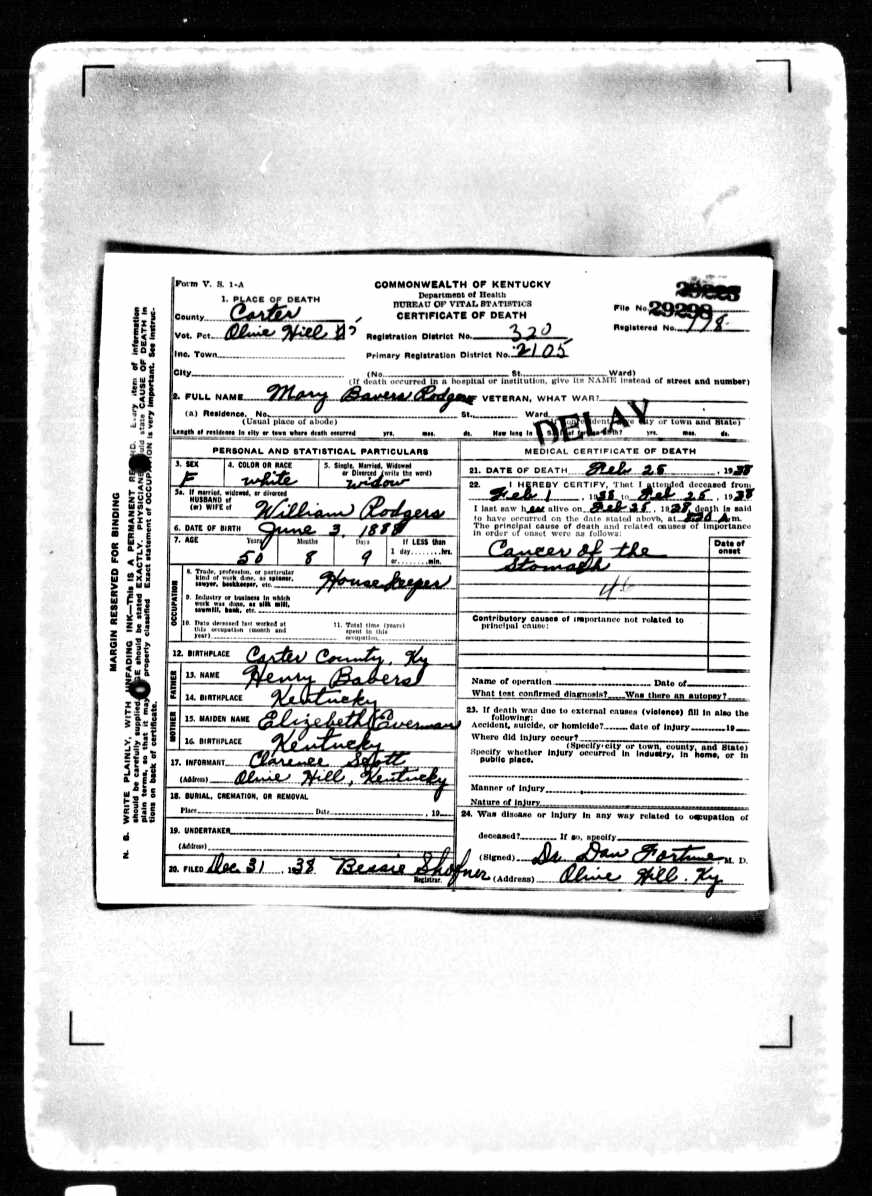 Form V. S. 1-A
COMMONWEALTH OF KENTUCKY
Department of Health
BUREAU OF VITAL STATISTICS
CERTIFICATE OF DEATH
File No. 29298
Registered No. 198
1. PLACE OF DEATH
County Carter
Vot. Pct. Olive Hill
Inc. Town
City
Registration District No. 320
Primary Registration District No. 2105
(No. St. Ward)
(If death occurred in a hospital or institution, give its NAME instead of street and number)
2. FULL NAME Mary Bavers Rodgers VETERAN, WHAT WAR?
(a) Residence. No. St. Ward
(Usual place of abode) city or town and State)
DELAY
Length of residence in city or town where death occurred yrs. mos. ds. How long in yrs. mos. ds.
PERSONAL AND STATISTICAL PARTICULARS
3. SEX F
4. COLOR OR RACE white
5. Single, Married, Widowed or Divorced (write the word) widow
5a. If married, widowed, or divorced
HUSBAND of
(or) WIFE of William Rodgers
6. DATE OF BIRTH June 3, 1888
7. AGE Years 50 Months 8 Days 9 If LESS than
1 day ........ hrs.
or ........ min.
OCCUPATION
8. Trade, profession, or particular
kind of work done, as spinner,
sawyer, bookkeeper, etc. House keeper
9. Industry or business in which
work was done, as silk mill,
sawmill, bank, etc.
10. Date deceased last worked at
this occupation (month and
year)
11. Total time (years)
spent in this
occupation
12. BIRTHPLACE Carter County, Ky
FATHER
13. NAME Henry Bavers
14. BIRTHPLACE Kentucky
MOTHER
15. MAIDEN NAME Elizebeth Everman
16. BIRTHPLACE Kentucky
17. INFORMANT Clarence Scott
(Address) Olive Hill, Kentucky
18. BURIAL, CREMATION, OR REMOVAL
Place Date , 19
19. UNDERTAKER
(Address)
20. FILED Dec 31, 1938 Bessie Shofner
Registrar.
MEDICAL CERTIFICATE OF DEATH
21. DATE OF DEATH Feb 25, 1938
22. I HEREBY CERTIFY, That I attended deceased from
Feb 1, 1938 to Feb 25, 1938
I last saw her alive on Feb 25, 1938 death is said
to have occurred on the date stated above, at m.
The principal cause of death and related causes of importance
in order of onset were as follows:
Date of onset
Cancer of the
Stomach
46
Contributory causes of importance not related to
principal cause:
Name of operation Date of
What test confirmed diagnosis? Was there an autopsy?
23. If death was due to external causes (violence) fill in also the
following:
Accident, suicide, or homicide? date of injury 19
Where did injury occur?
(Specify city or town, county, and State)
Specify whether injury occurred in industry, in home, or in
public place.
Manner of injury
Nature of injury
24. Was disease or injury in any way related to occupation of
deceased? If so, specify
(Signed) Dr. Dan Fortune, M. D.
(Address) Olive Hill, Ky
MARGIN RESERVED FOR BINDING
N. B. WRITE PLAINLY, WITH UNFADING INK—This IS A PERMANENT RECORD. Every item of information
should be carefully supplied. AGE should be stated EXACTLY. PHYSICIANS should state CAUSE OF DEATH in
plain terms, so that it may be properly classified. Exact statement of OCCUPATION is very important. See instruc-
tions on back of certificate.